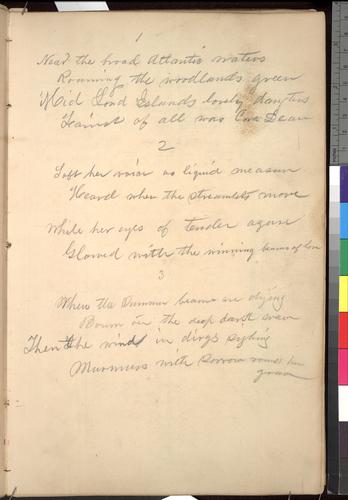 1
Near the broad Atlantic waters
Roaming the woodlands green
'Mid Long Islands lovely daughters
Fairest of all was Cora Dean
2
Soft her voice as liquid measure
Heard when the streamlets move
While her eyes of tender azure
Glowed with the winning beams of love
3
When the Summer beams are dying
Down on the deep dark wave
Then the wind in dirges sighing
Murmurs with sorrow round her
grave